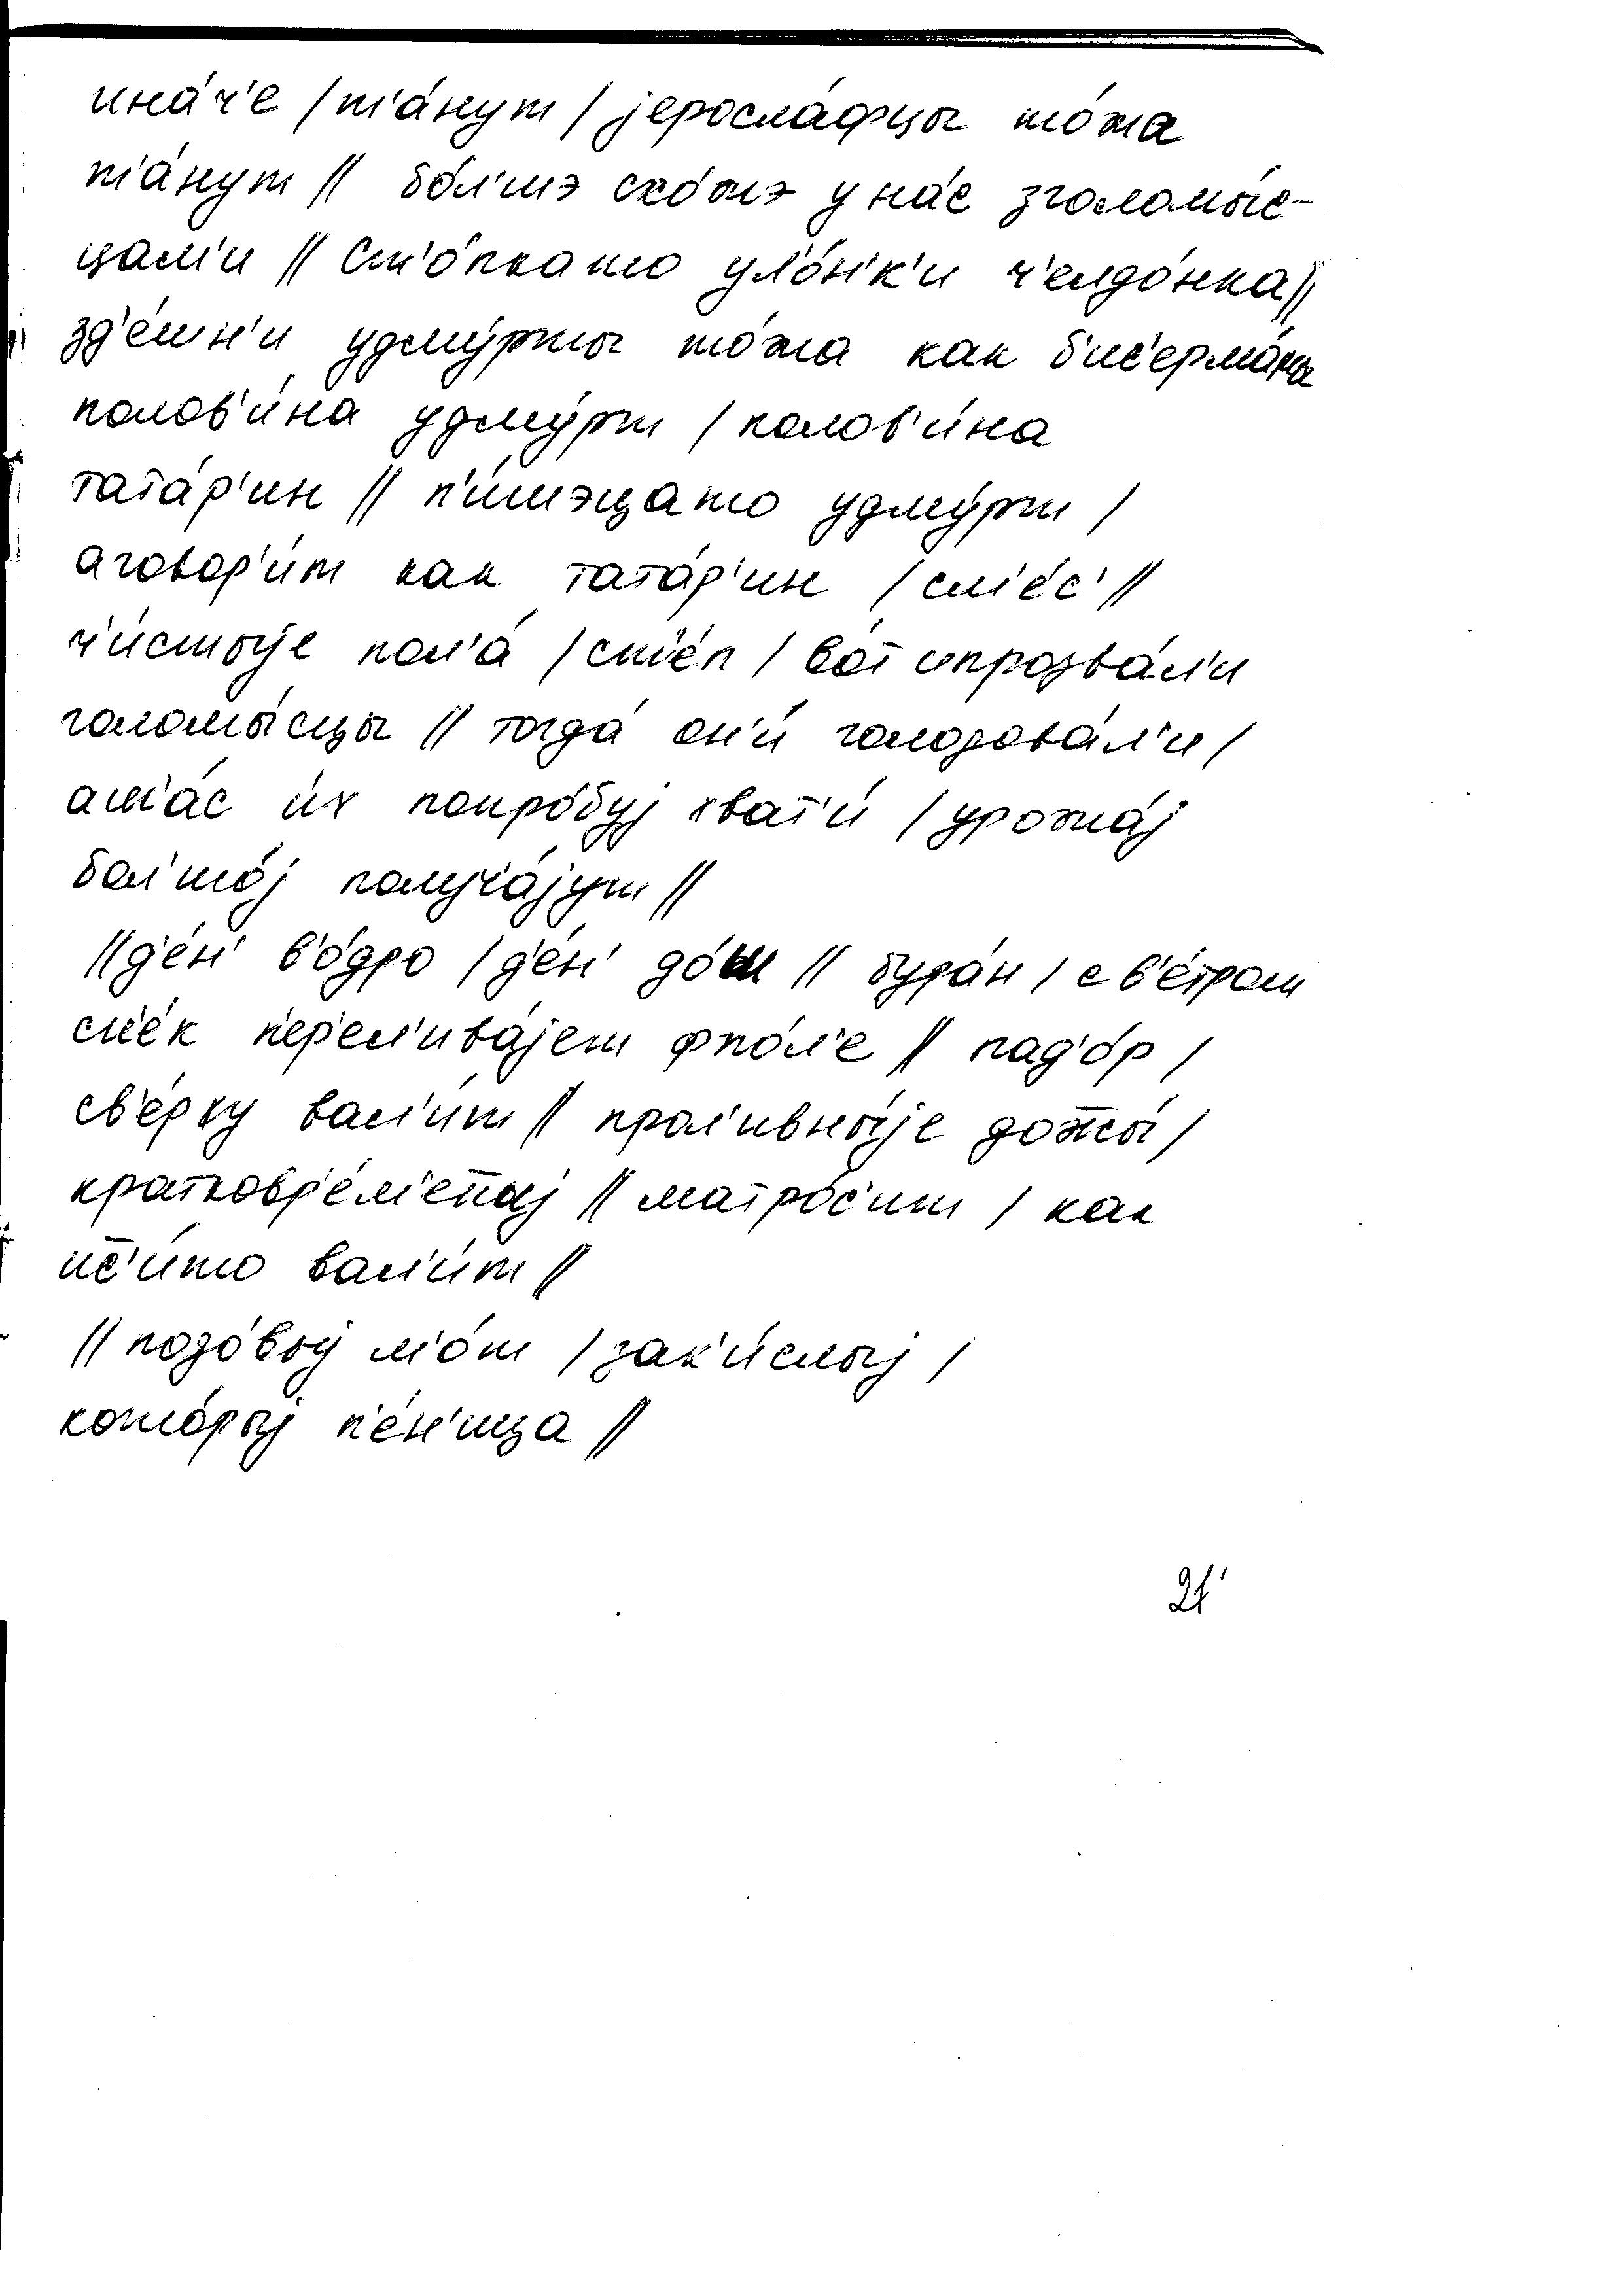 ина́ч'е / т'а́нут / jеросла́фцы то́жа
т'а́нут // бо́л'шэ схо́жэ у на́с зголомы́с-
цам'и // Ст'о́пкато ул'о́н'к'и ч'елдо́нка //
зд'е́шн'и удму́рты то́жа как б'ис'ерма́ны
полов'и́на удму́рт / полов'и́на
тата́р'ин // п'и́шэцато удму́рт /
аговор'и́т как тата́р'ин / см'е́с' //
ч'и́стыjе пол'а́ / ст'е́п / во́т ипрозва́л'и
голомы́сцы // тогда́ он'и́ голодова́л'и /
ащ'а́с и́х попро́буj хват'и́ / урожа́j
бол'шо́j получ'а́jут //
// д'е́н' в'о́дро / д'е́н' до́ш // бура́н / с в'е́тром
сн'е́к п'ер'ел'ива́jет фпо́л'е // пад'о́р /
св'е́рху вал'и́т // прол'ивны́jе дожжы́ /
кратковр'е́м'еныj // матро́с'ит / как
ис'и́то вал'и́т //
// подо́выj м'о́т / зак'и́слыj /
кото́рыj п'е́н'ица //
21